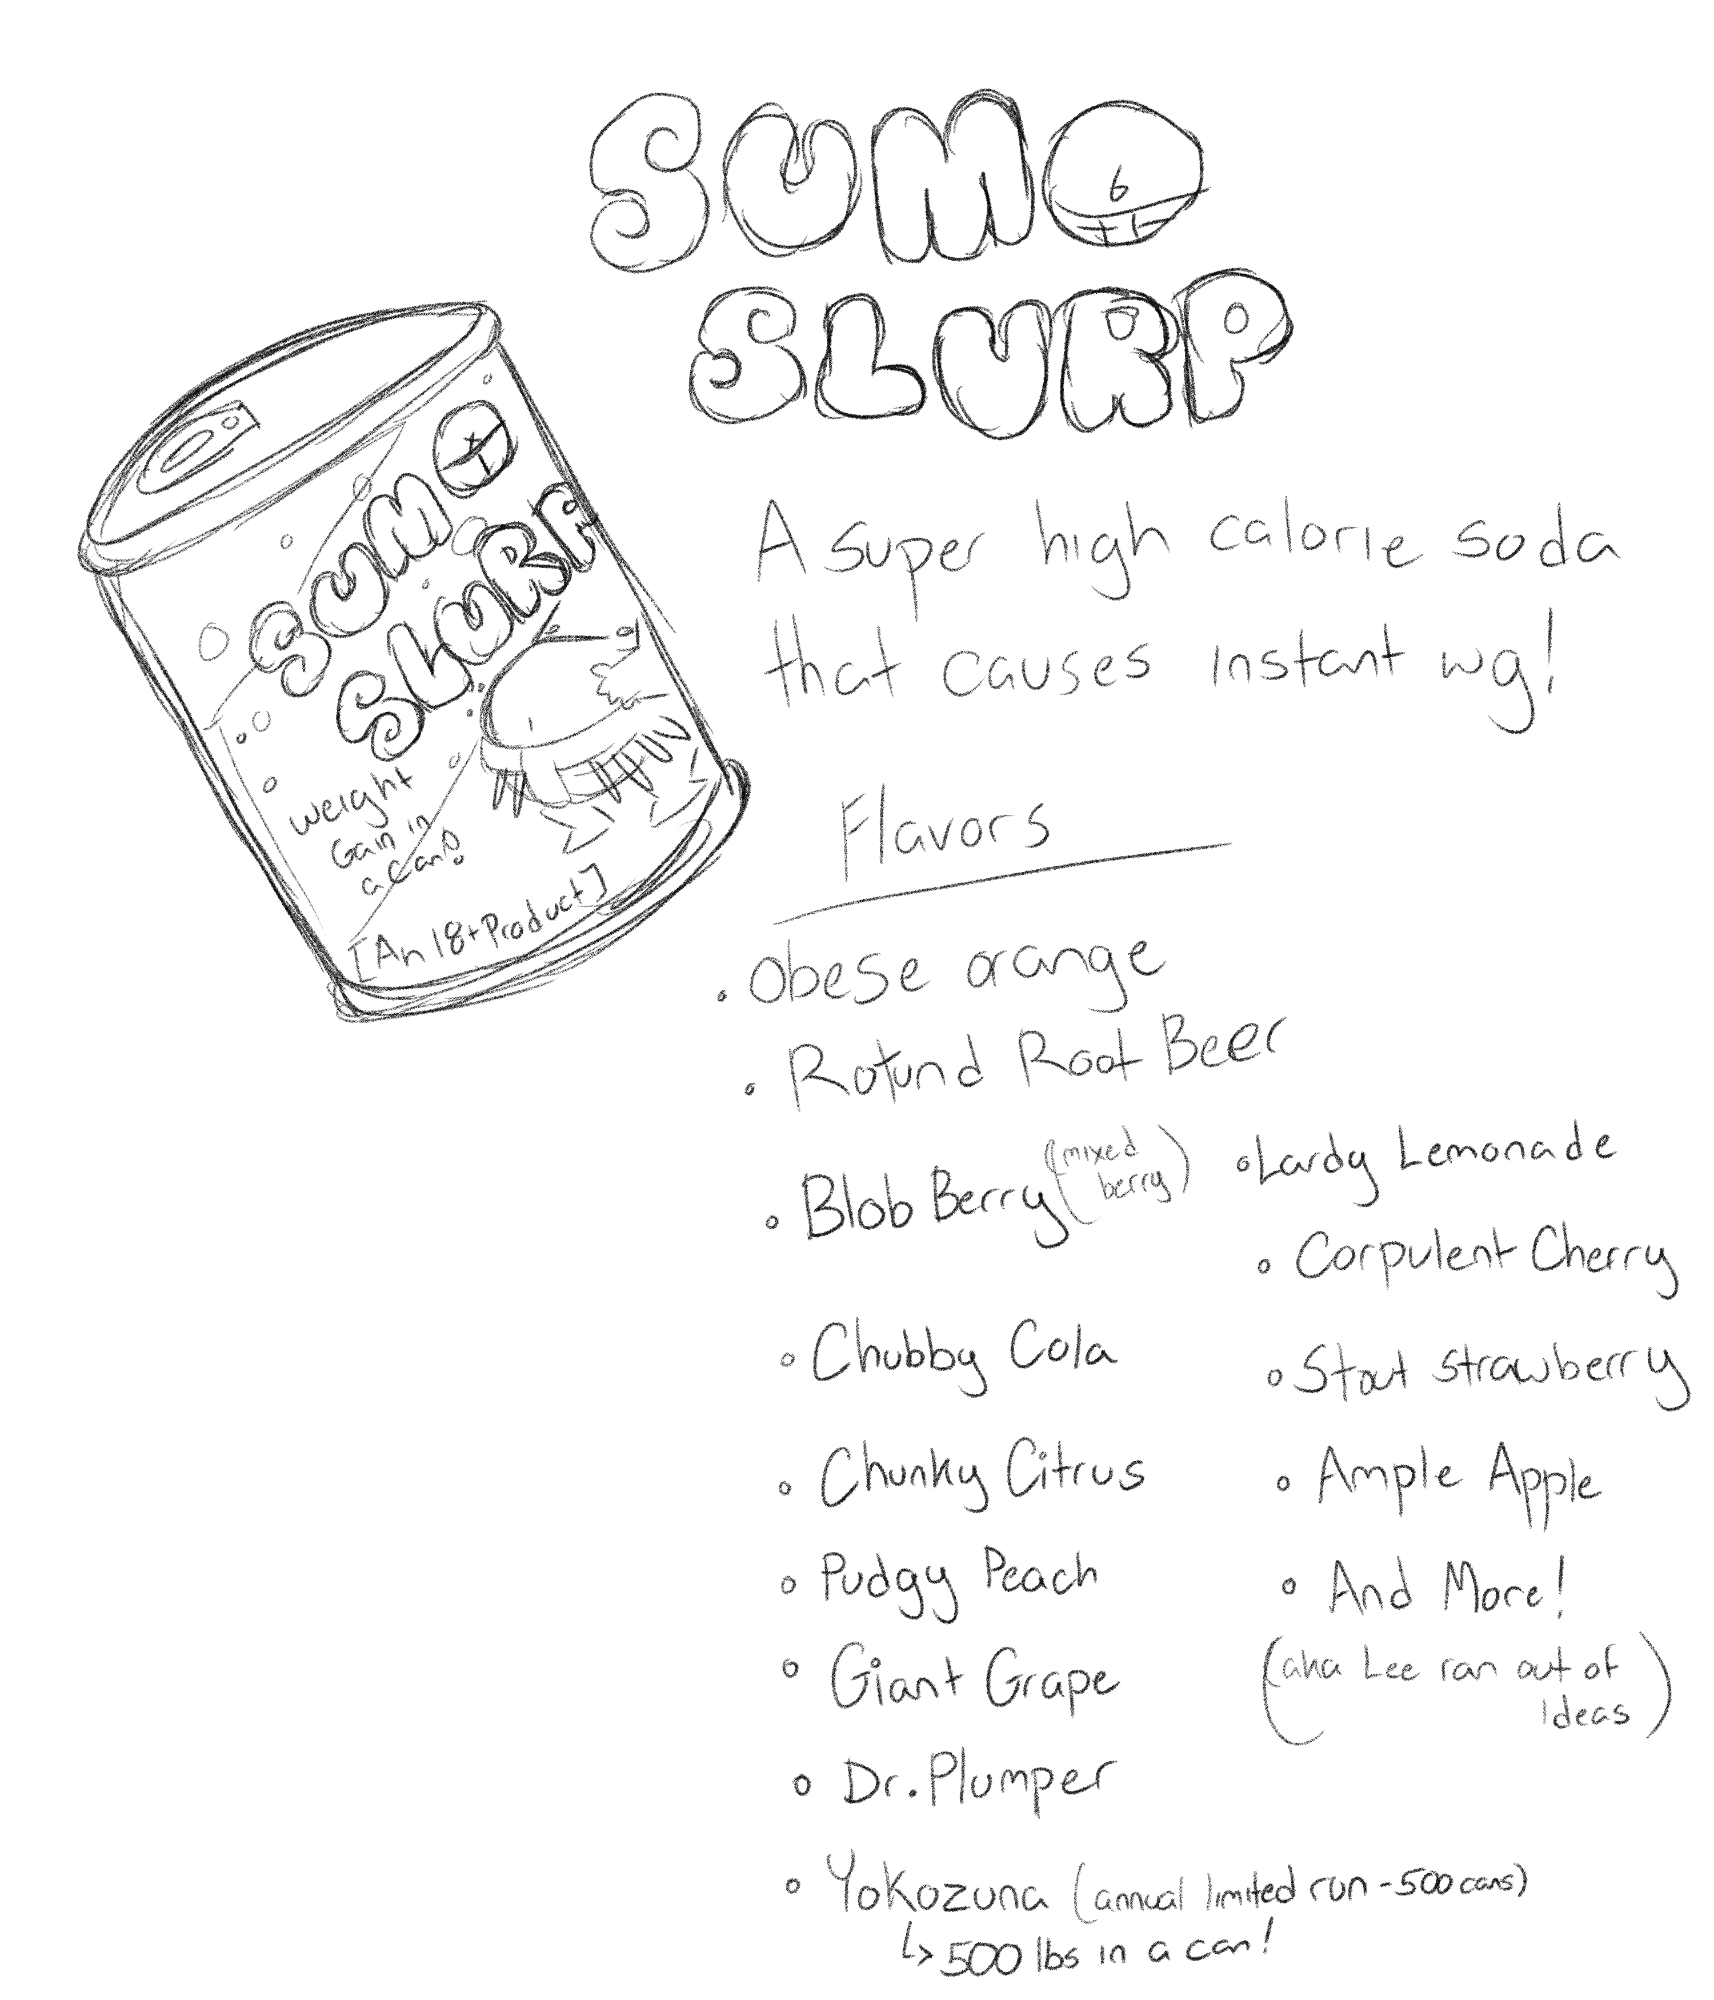 SUMO
SLURP
SUMO
SLURP
weight
Gain in
a can!
[An 18+ Product]
A super high calorie soda
that causes instant wg!
Flavors
• Obese orange
• Rotund Root Beer
• Blob Berry (mixed
berry)
• Chubby Cola
• Chunky Citrus
• Pudgy Peach
• Giant Grape
• Dr. Plumper
• Yokozuna (annual limited run - 500 cans)
↳ 500 lbs in a can!
• Lardy Lemonade
• Corpulent Cherry
• Stout strawberry
• Ample Apple
• And More!
(aka Lee ran out of
Ideas)